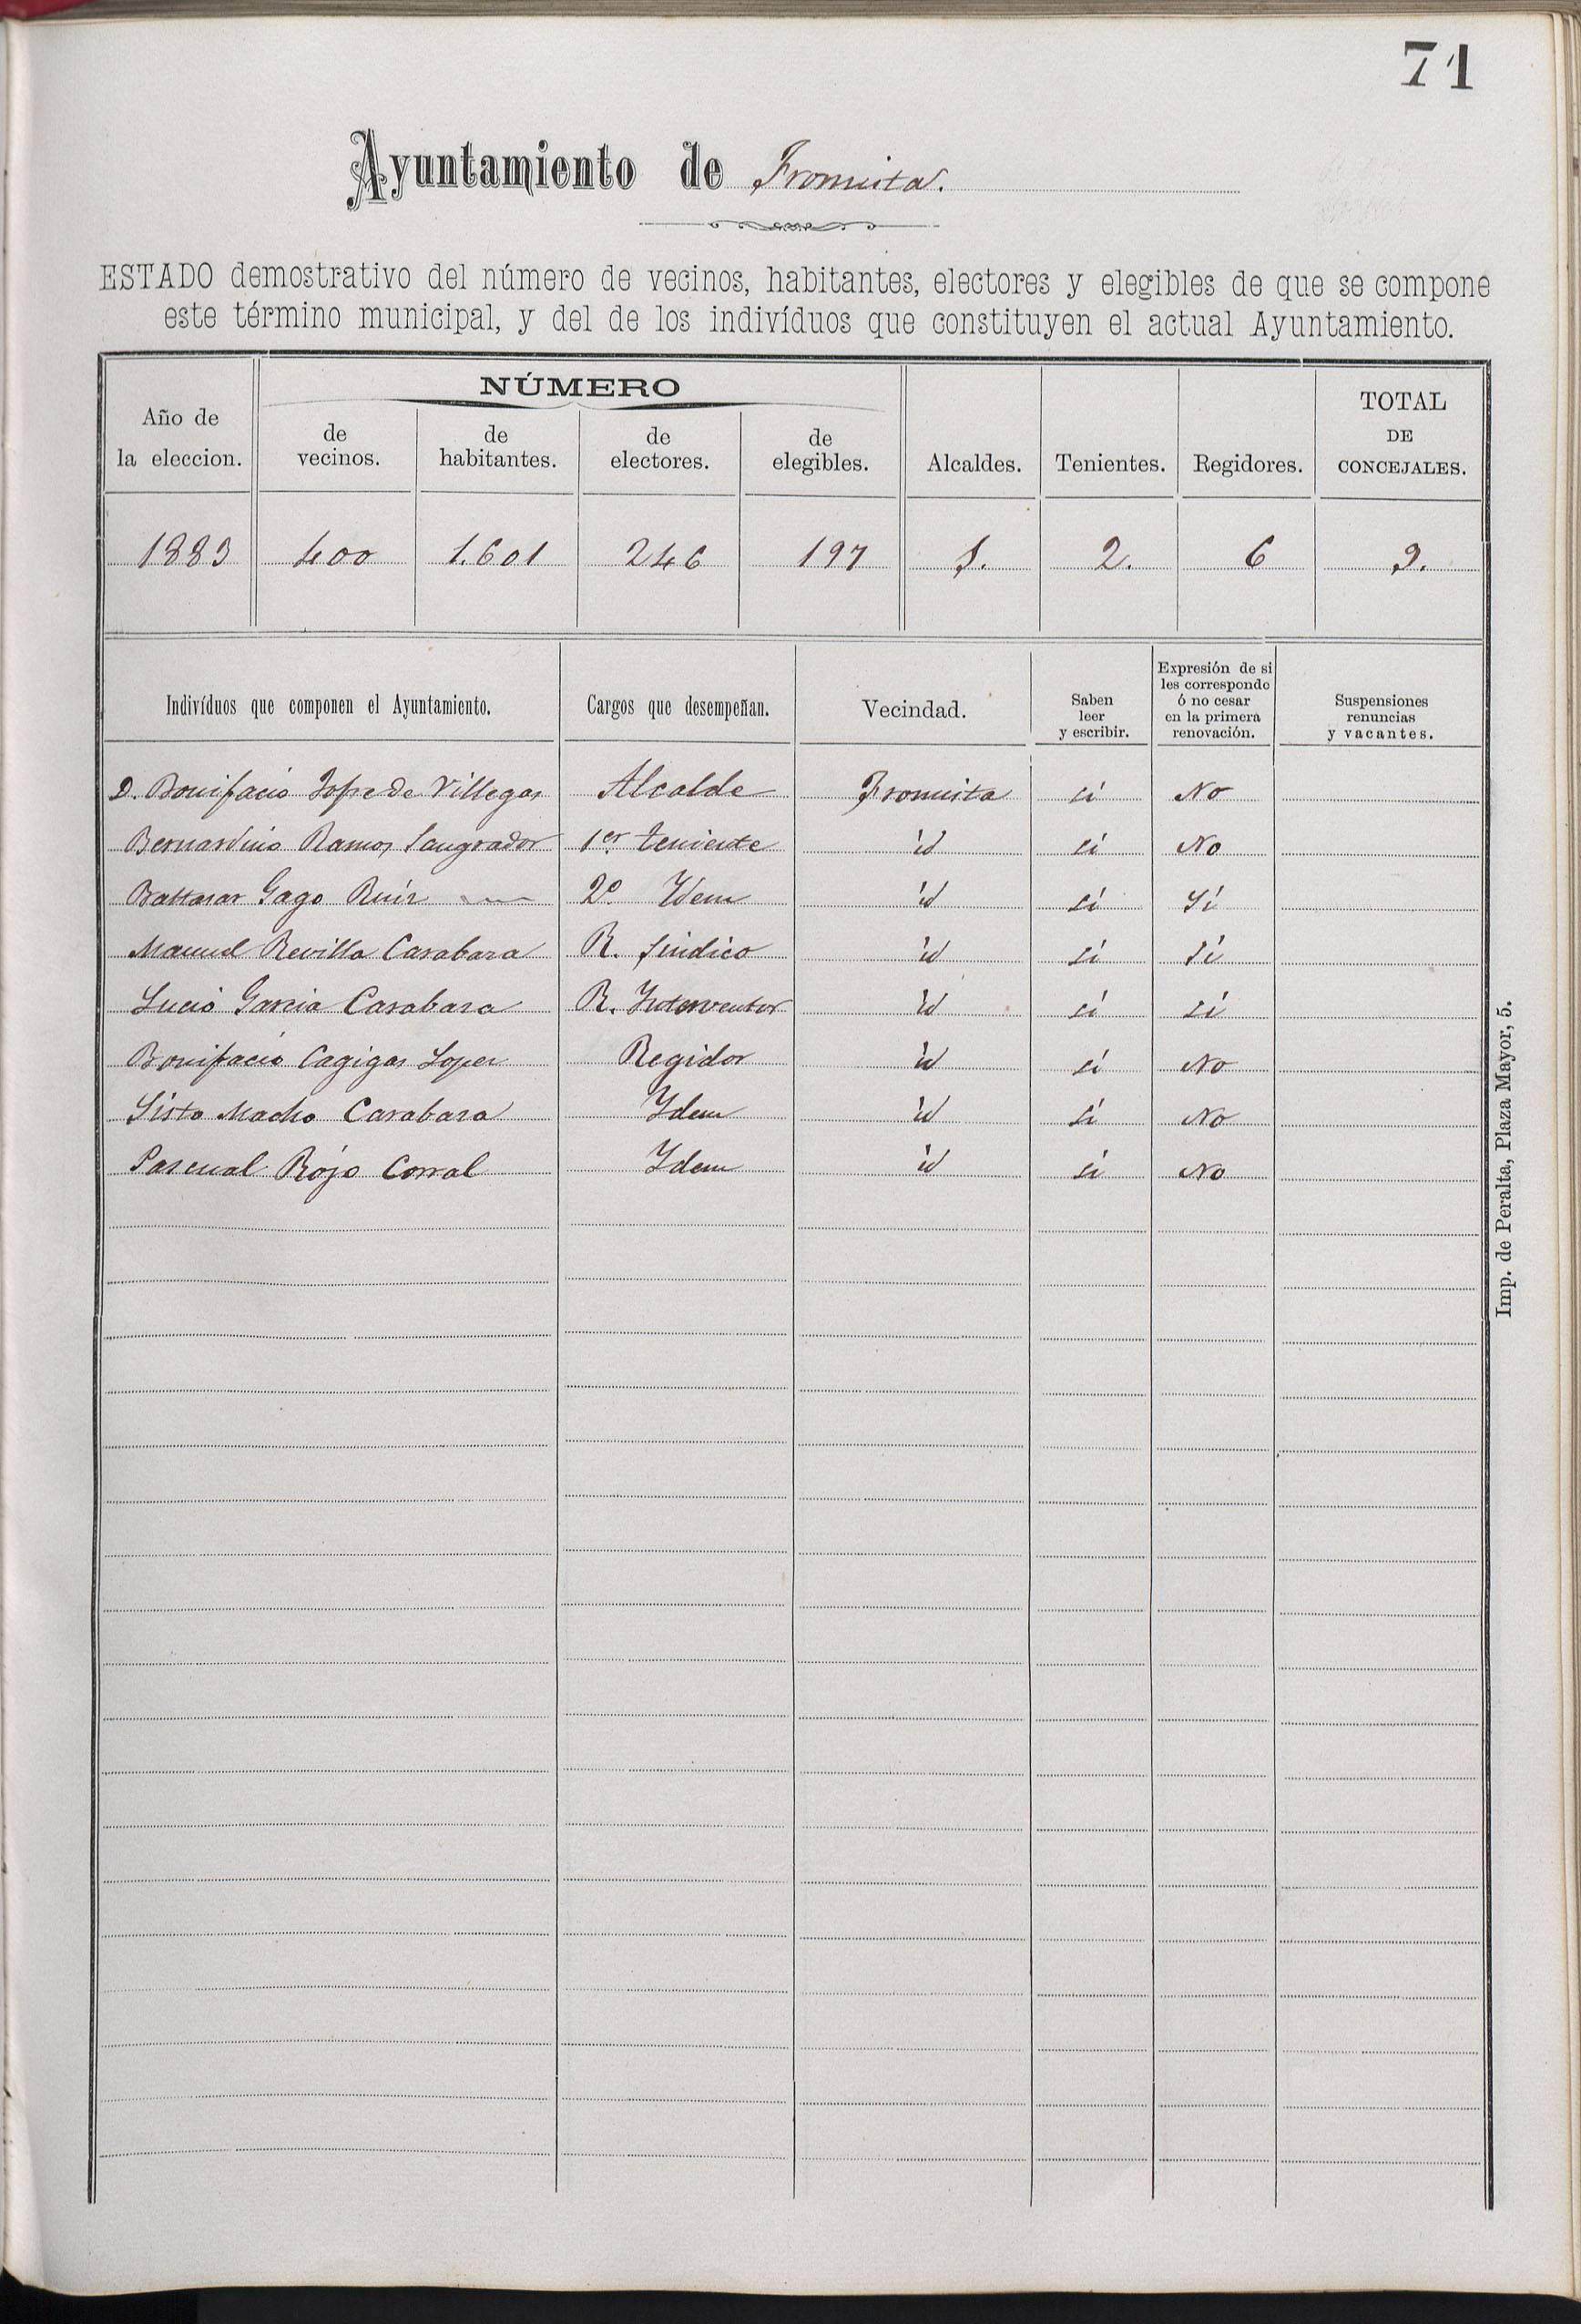 71
Ayuntamiento de Fromista.
ESTADO demostrativo del número de vecinos, habitantes, electores y elegibles de que se compone
este término municipal, y del de los indivíduos que constituyen el actual Ayuntamiento.
Año de la eleccion. NÚMERO de vecinos. de habitantes. de electores. de elegibles. Alcaldes. Tenientes. Regidores. TOTAL DE CONCEJALES.
1883 400 1.601 246 197 1. 2. 6 9.
Indivíduos que componen el Ayuntamiento. Cargos que desempeñan. Vecindad. Saben leer y escribir. Expresión de si les corresponde ó no cesar en la primera renovación. Suspensiones renuncias y vacantes.
D. Bonifacio Lope de Villegas Alcalde Fromista si No
Bernardino Ramos Sangrador 1er. teniente id si No
Baltasar Gago Ruiz 2º Idem id si Si
Manuel Revilla Carabaza R. Sindico id si Si
Lucio Garcia Carabaza R. Interventor id si si
Bonifacio Cagigas Lopez Regidor id si No
Sisto Macho Carabaza Idem id si No
Pascual Rojo Corral Idem id si No
Imp. de Peralta, Plaza Mayor, 5.